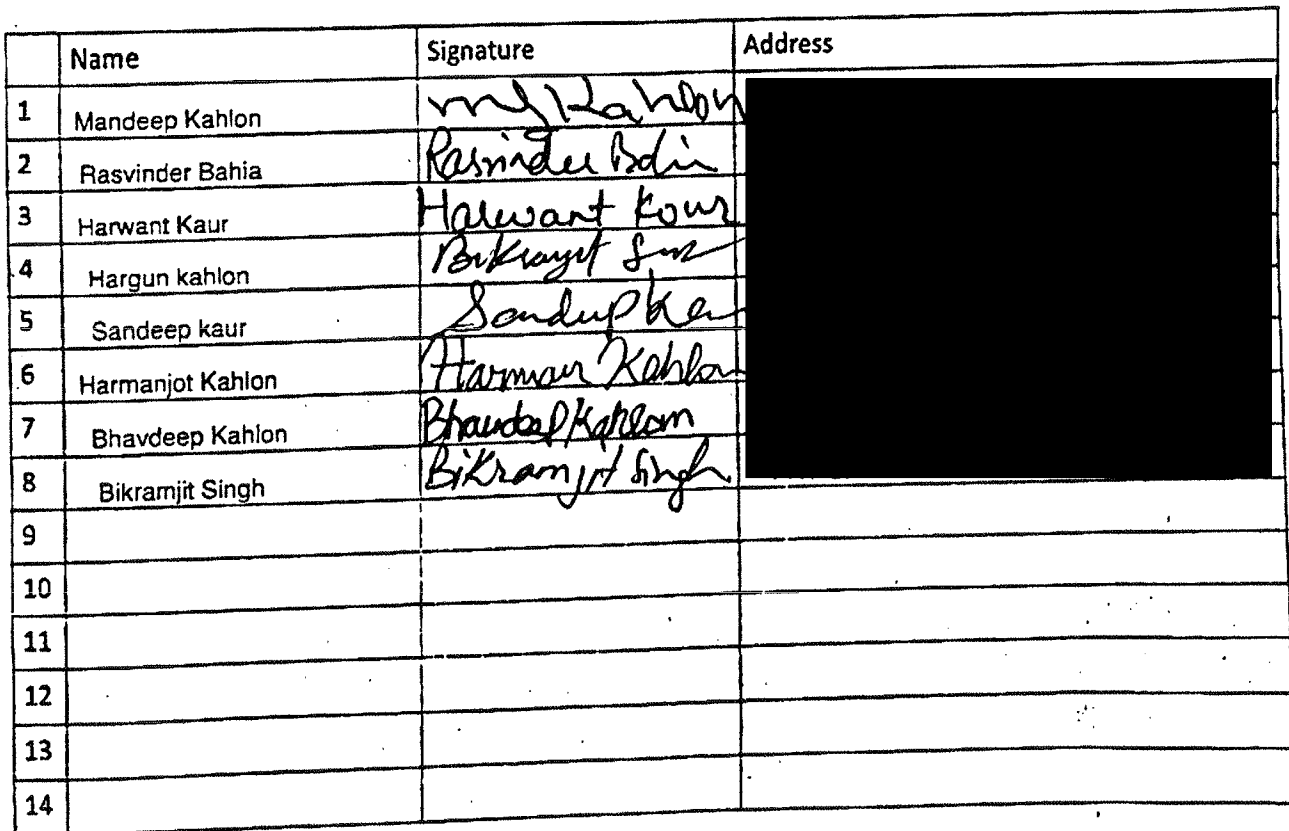 Name Signature Address
1 Mandeep Kahlon Kahlon
2 Rasvinder Bahia Rasvinder
3 Harwant Kaur Harwant Kour
4 Hargun kahlon Bikramjit
5 Sandeep kaur Sandeep
6 Harmanjot Kahlon Harman Kahlon
7 Bhavdeep Kahlon Bhavdeep Kahlon
8 Bikramjit Singh Bikramjit Singh
9
10
11
12
13
14